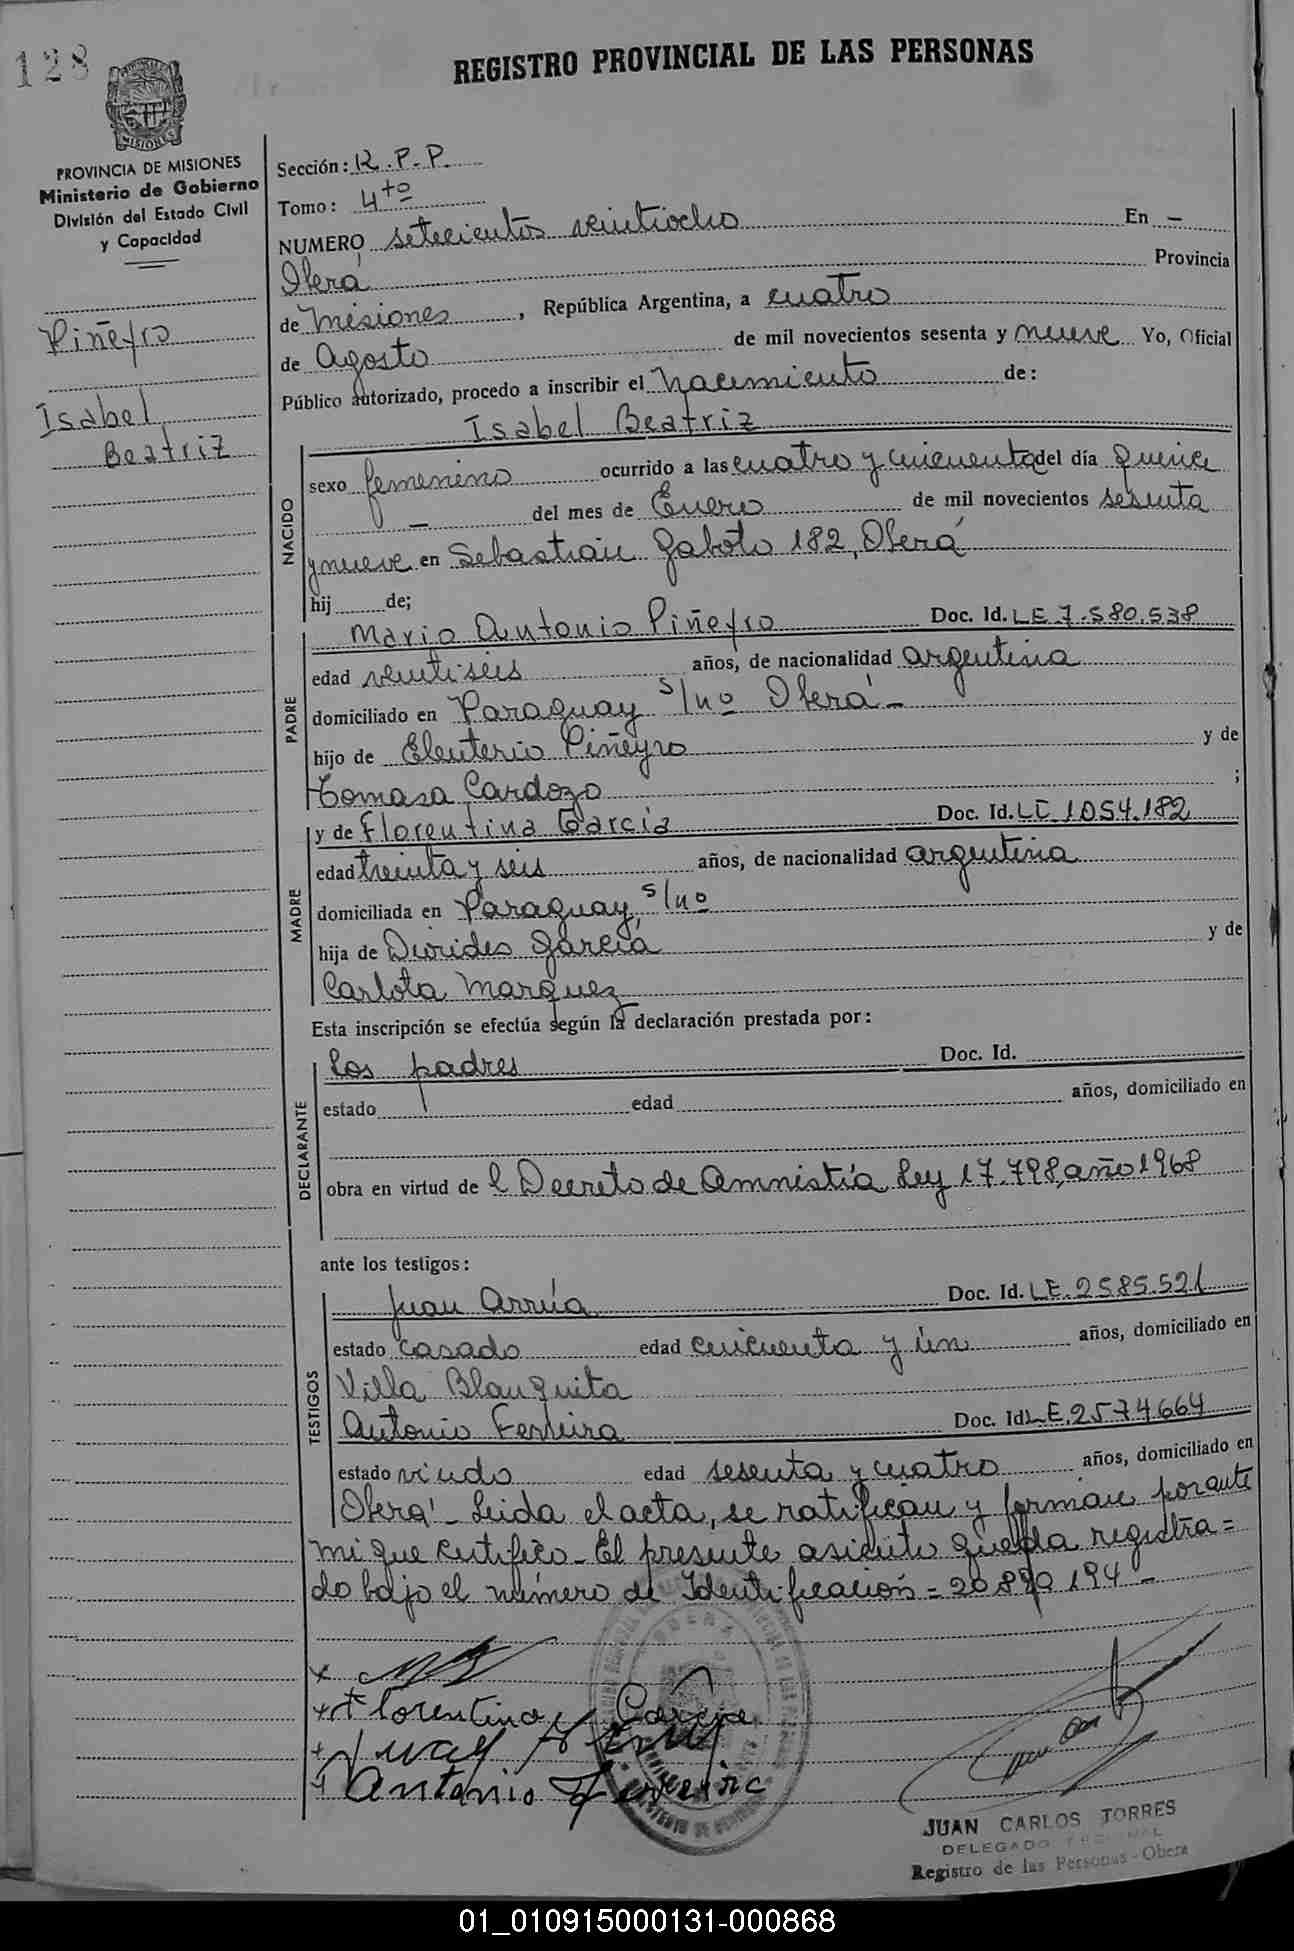 128
REGISTRO PROVINCIAL DE LAS PERSONAS
MISIONES
PROVINCIA DE MISIONES
Ministerio de Gobierno
División del Estado Civil
y Capacidad
Piñeyro
Isabel
Beatriz
Sección: R.P.P.
Tomo: 4to
NUMERO setecientos veintiocho En -
Oberá Provincia
de Misiones, República Argentina, a cuatro
de Agosto de mil novecientos sesenta y nueve Yo, Oficial
Público autorizado, procedo a inscribir el Nacimiento de:
Isabel Beatriz
NACIDO
sexo femenino ocurrido a las cuatro y cincuenta del día quince
- del mes de Enero de mil novecientos sesenta
y nueve en Sebastián Gaboto 182, Oberá
hij de;
PADRE
Mario Antonio Piñeyro Doc. Id. LE 7.580.538
edad veintiseis años, de nacionalidad argentina
domiciliado en Paraguay s/nº Oberá -
hijo de Eleuterio Piñeyro y de
Tomasa Cardozo ;
MADRE
y de Florentina García Doc. Id. LC.1054.182
edad treinta y seis años, de nacionalidad argentina
domiciliada en Paraguay, s/nº
hija de García y de
Carlota Marquez
Esta inscripción se efectúa según la declaración prestada por:
DECLARANTE
los padres Doc. Id.
estado edad años, domiciliado en
obra en virtud de l Decreto de Amnistía Ley 17.798, año 1968
ante los testigos:
TESTIGOS
Juan Arrúa Doc. Id. LE.2585.521
estado casado edad cincuenta y ún años, domiciliado en
Villa Blanquita
Antonio Ferreira Doc. Id. LE.2574664
estado viudo edad sesenta y cuatro años, domiciliado en
Oberá - Leida el acta, se ratifican y forman por ante
mi que certifico - El presente asiento queda registra=
do bajo el número de Identificación = 20.890 194 -
Florentina García
Juan
Antonio Ferreira
JUAN CARLOS TORRES
DELEGADO
Registro de las Personas - Oberá
01_010915000131-000868